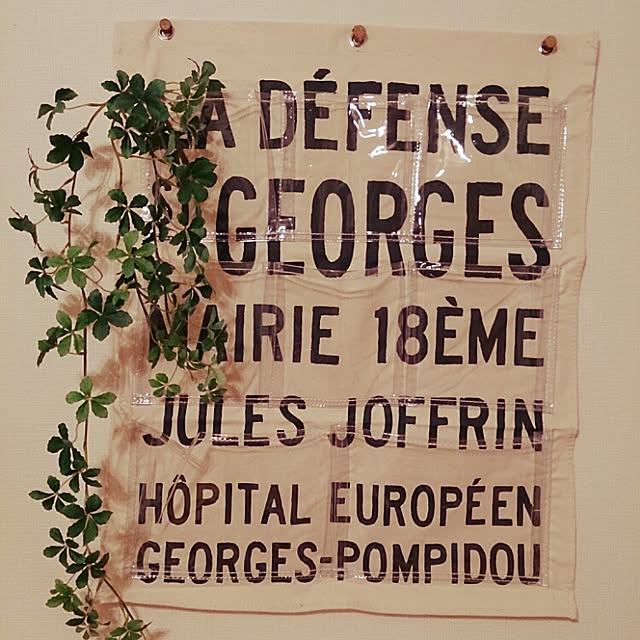 LA DÉFENSE
GEORGES
MAIRIE 18ÈME
JULES JOFFRIN
HÔPITAL EUROPÉEN
GEORGES-POMPIDOU